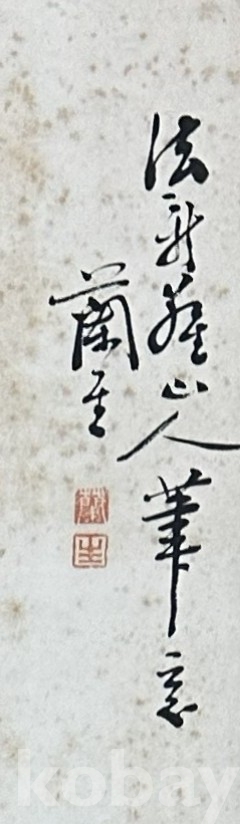 法新羅山人筆意
蘭
kobay